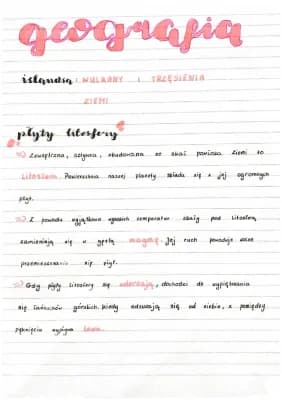 geografia
islandia: WULKANY I TRZĘSIENIA
ZIEMI
płyty litosfery
Zewnętrzna, sztywna, zbudowana ze skał powłoka Ziemi to
litosfera. Powierzchnia naszej planety składa się z jej ogromnych
płyt.
Z powodu wyjątkowo wysokich temperatur skały pod litosferą
zamieniają się w gęstą magmę. Jej ruch powoduje
przemieszczanie się płyt.
Gdy płyty litosfery się zderzają, dochodzi do wypiętrzania
się łańcuchów górskich. kiedy odsuwają się od siebie, z pomiędzy
pęknięcia wypływa lawa.